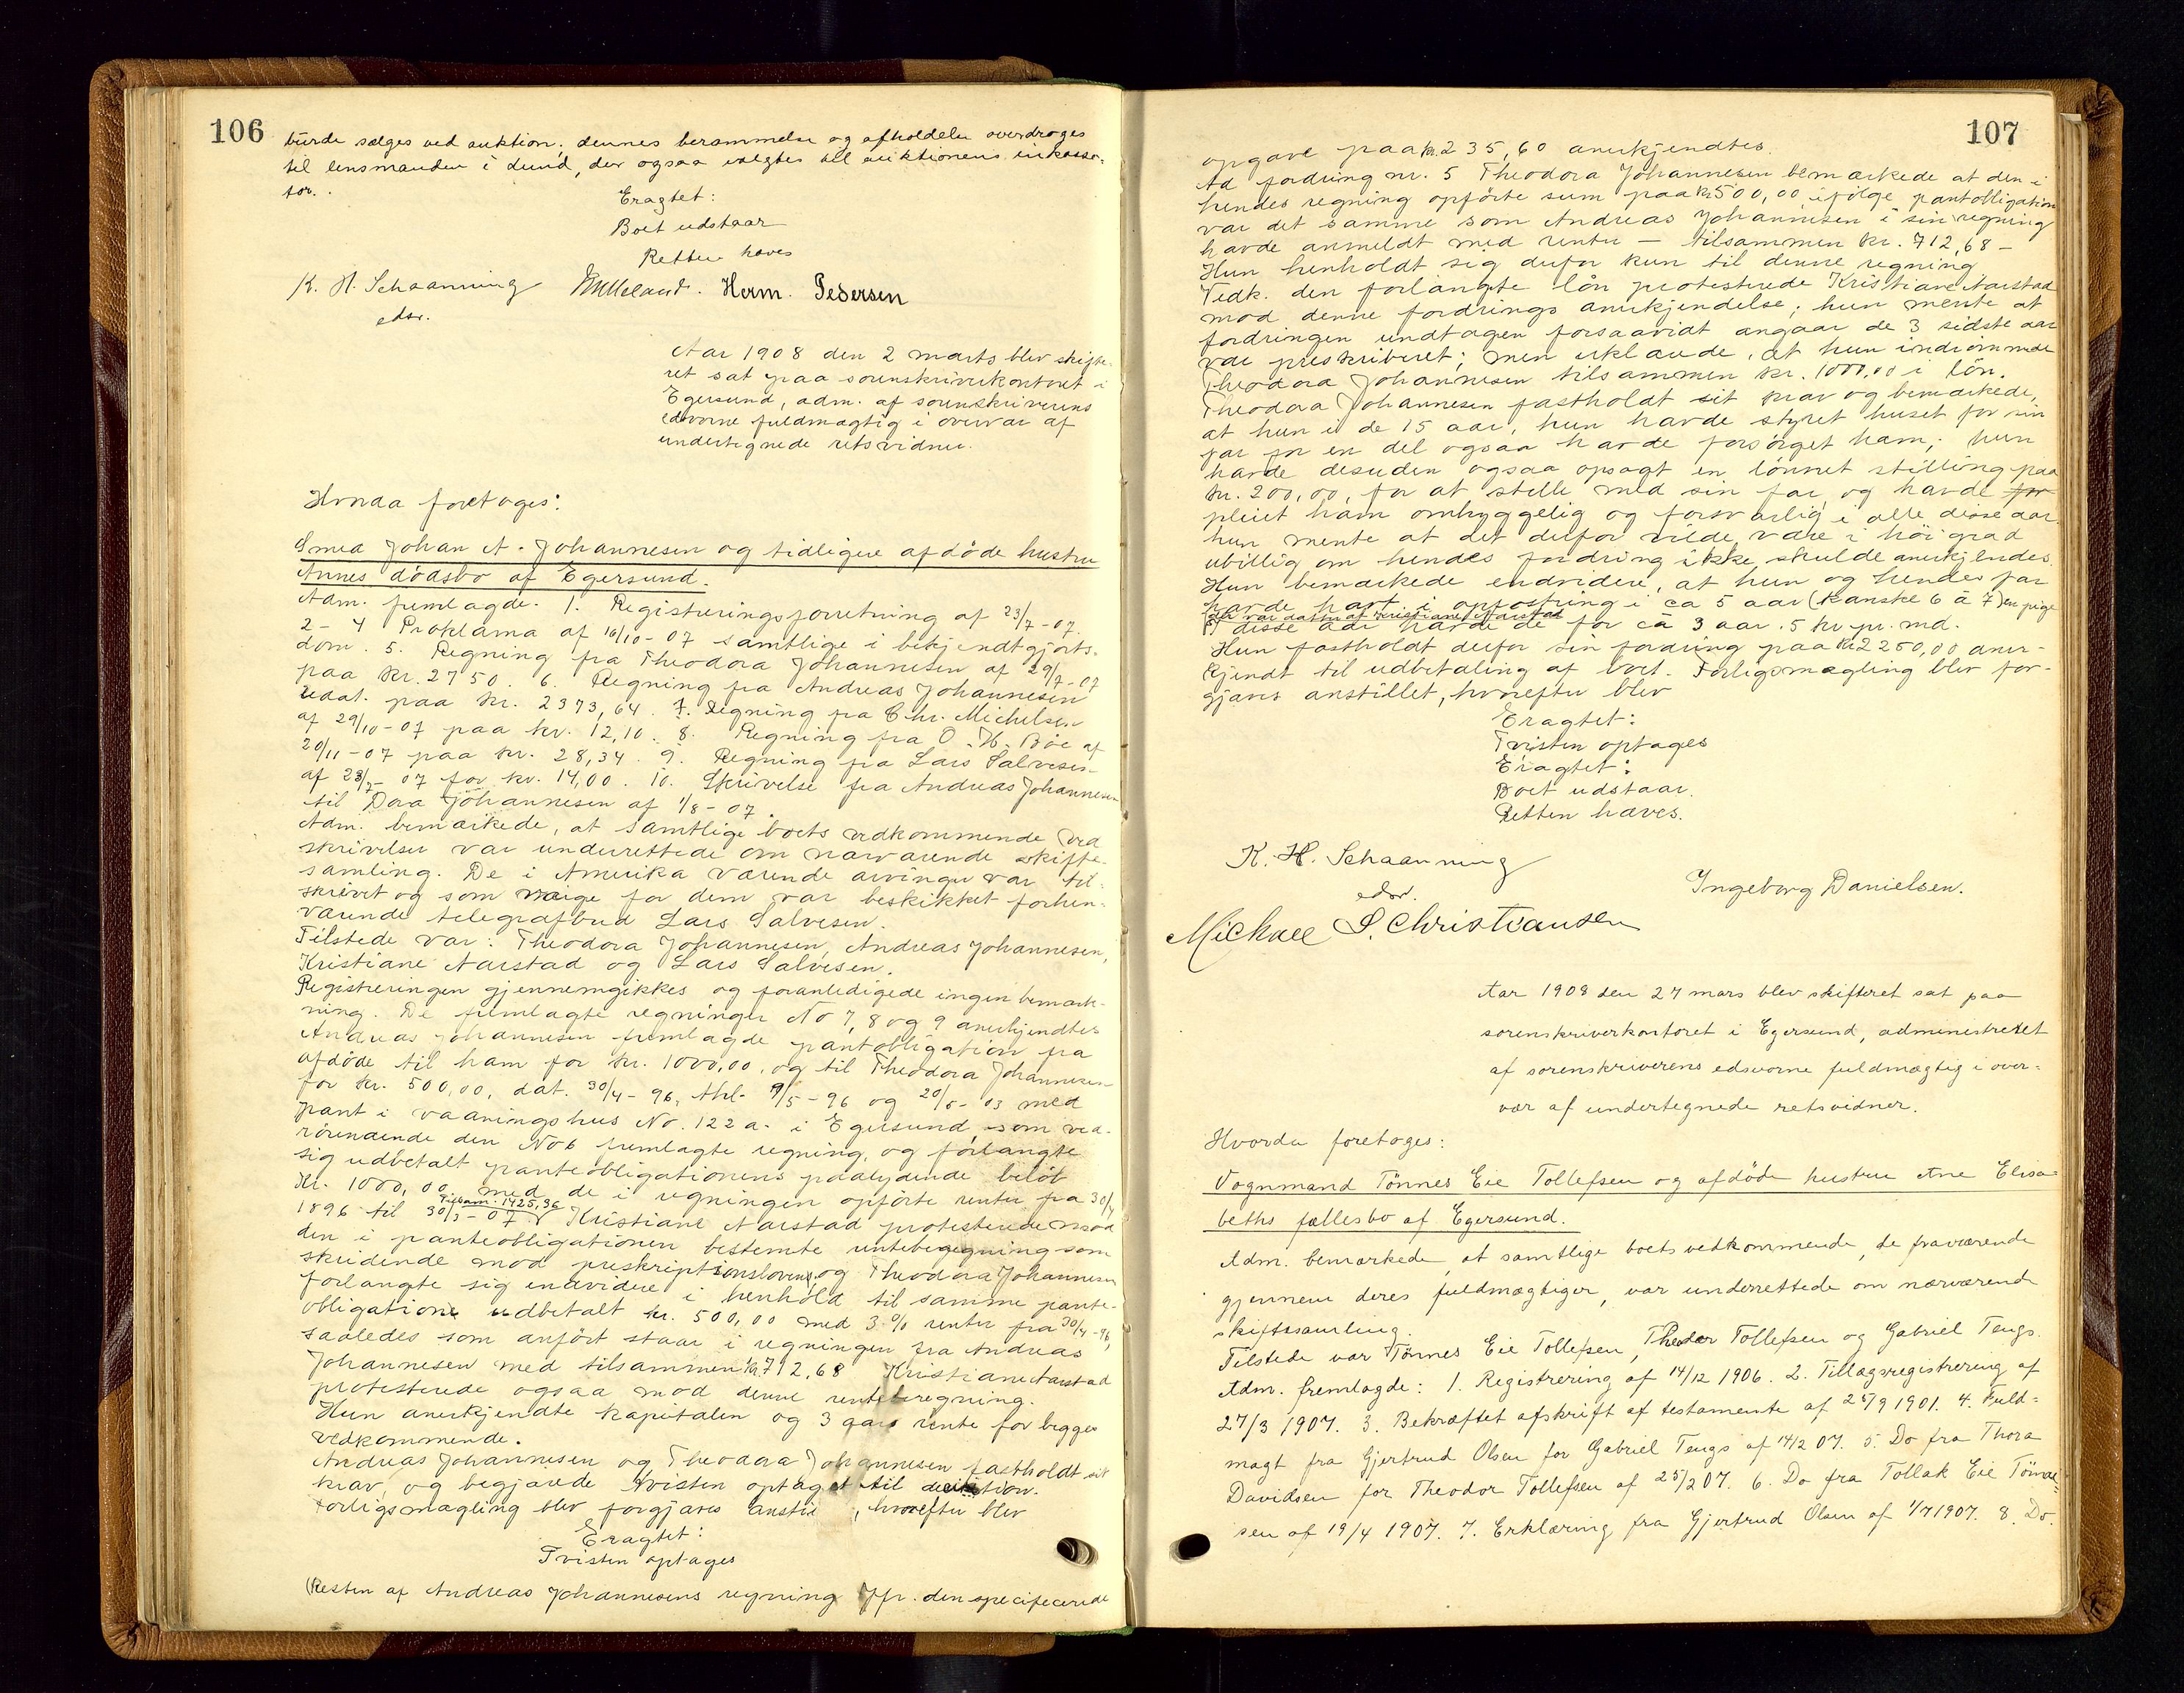 106
burde sælges ved auktion; dennes berammelse og afholdelse overdroges
til lensmanden i Lund, der ogsaa valgtes til auktionens inkassa-
tor.
Eragtet:
Boet udstaar
Retten hæves
K. H. Schaanning
edsv.
Herm. Pedersen
Aar 1908 den 2 marts blev skifte-
ret sat paa sorenskriverkontoret i
Egersund, adm. af sorenskriverens
edsvorne fuldmægtig i overvær af
undertegnede retsvidner.
Hvorda foretoges:
Smed Johan A. Johannesen og tidligere afdøde hustru
Annes dødsbo af Egersund.
Adm. fremlagde. 1. Registreringsforretning af 23/7-07.
2-4 Proklama af 16/10-07 samtlige i bekjendtgjorts-
dom. 5. Regning fra Theodora Johannesen af 29/7-07
paa kr. 2750. 6. Regning fra Andreas Johannesen
udat. paa kr. 2373,64. 7. Regning fra Chr. Michelsen
af 29/10-07 paa kr. 12,10. 8. Regning fra O. H. Bøe af
20/11-07 paa kr. 28,34. 9. Regning fra Lars Salvesen
af 23/7-07 for kr. 14,00. 10. Skrivelse fra Andreas Johannesen
til Dora Johannesen af 1/8-07.
Adm. bemærkede, at samtlige boets vedkommende ved
skrivelser var underrettede om nærværende skifte-
samling. De i Amerika værende arvinger var til-
skrevet og som værge for dem var beskikket forhen-
værende telegrafbud Lars Salvesen.
Tilstede var: Theodora Johannesen, Andreas Johannesen,
Kristiane Aarstad og Lars Salvesen.
Registreringen gjennemgikkes og foranledigede ingen bemærk-
ning. De fremlagte regninger No 7, 8 og 9 anerkjendtes
Andreas Johannesen fremlagde pantobligation fra
afdøde til ham for kr. 1000,00, og til Theodora Johannesen
for kr. 500,00, dat. 30/4-96, thl. 9/5-96 og 20/5-03 med
pant i vaaningshus No. 122 a. i Egersund, som ved-
rørenaende den No 6 fremlagte regning, og forlangte
sig udbetalt panteobligationens paalydende beløb
kr. 1000,00 med de i regningen opførte renter fra 30/4
1896 til 30/3-07. Tilsam. 1425,36 Kristiane Aarstad protesterede mod
den i panteobligationen bestemte renteberegning som
stridende mod preskriptionsloven, og Theodora Johannesen
forlangte sig endvidere i henhold til samme pante-
obligation udbetalt kr. 500,00 med 3% renter fra 30/4-96,
saaledes som anført staar i regningen fra Andreas
Johannesen med tilsammen kr. 712,68 Kristiane Aarstad
protesterede ogsaa mod denne renteberegning.
Hun anerkjendte kapitalen og 3 aars rente for begges
vedkommende.
Andreas Johannesen og Theodora Johannesen fastholdt sit
krav, og begjærede tvisten optaget til decition.
Forligsmægling blev forgjæves anstil , hvorefter blev
Eragtet:
Tvisten optages
(Resten af Andreas Johannesens regning Jfr. den specificerede
107
opgave paa kr. 235,60 anerkjendtes.
Ad fordring nr. 5 Theodora Johannesen bemærkede at den i
hendes regning opførte sum paa kr 500,00 ifølge pantobligation
var det samme som Andreas Johannesen i sin regning
havde anmeldt med renter - tilsammen kr. 712,68 -
Hun henholdt sig derfor kun til denne regning
Vedk. den forlangte løn protesterede Kristiane Aarstad
mod denne fordrings anerkjendelse; hun mente at
fordringen undtagen forsaavidt angaar de 3 sidste aar
var preskriberet; men erklærede, at hun indrømmede
Theodora Johannesen tilsammen kr. 1000,00 i løn.
Theodora Johannesen fastholdt sit krav og bemærkede,
at hun i de 15 aar, hun havde styret huset for sin
far for en del ogsaa havde forsørget ham; hun
havde desuden ogsaa opsagt en lønnet stilling paa
kr. 200,00, for at stelle med sin far, og havde for
pleiet ham omhyggelig og forsvarlig i alle disse aar.
hun mente at det derfor vilde være i høi grad
ubillig om hendes fordring ikke skulde anerkjendes.
Hun bemærkede endvidere, at hun og hendes far
havde havt i opfostring i ca 5 aar (kanske 6 à 7) en pige
der var datter af Kristiane Aarstad
I disse aar havde de for ca 3 aar 5 kr pr. md.
Hun fastholdt derfor sin fordring paa kr 2250,00 aner-
kjendt til udbetaling af boet. Forligsmægling blev for-
gjæves anstillet, hvorefter blev
Eragtet:
Tvisten optages
Eragtet:
Boet udstaar.
Retten hæves.
K. H. Schaanning
edsv.
Ingeborg Danielsen.
Michael S. Christiansen
Aar 1908 den 27 mars blev skifteret sat paa
sorenskriverkontoret i Egersund, administreret
af sorenskriverens edsvorne fuldmægtig i over-
vær af undertegnede retsvidner.
Hvorda foretoges:
Vognmand Tønnes Eie Tollefsen og afdøde hustru Ane Elisa-
beths fællesbo af Egersund.
Adm. bemærkede, at samtlige boets vedkommende, de fraværende
gjennem deres fuldmægtiger, var underrettede om nærværende
skiftesamling.
Tilstede var Tønnes Eie Tollefsen, Theodor Tollefsen og Gabriel Tengs.
Adm. fremlagde: 1. Registrering af 14/12 1906. 2. Tillægsregistrering af
27/3 1907. 3. Bekræftet afskrift af testamente af 25/9 1901. 4. Fuld-
magt fra Gjertrud Olsen for Gabriel Tengs af 14/2 07. 5. Do fra Thora
Davidsen for Theodor Tollefsen af 25/2 07. 6. Do fra Tollak Eie Tønne-
sen af 19/4 1907. 7. Erklæring fra Gjertrud Olsen af 1/7 1907. 8. Do.